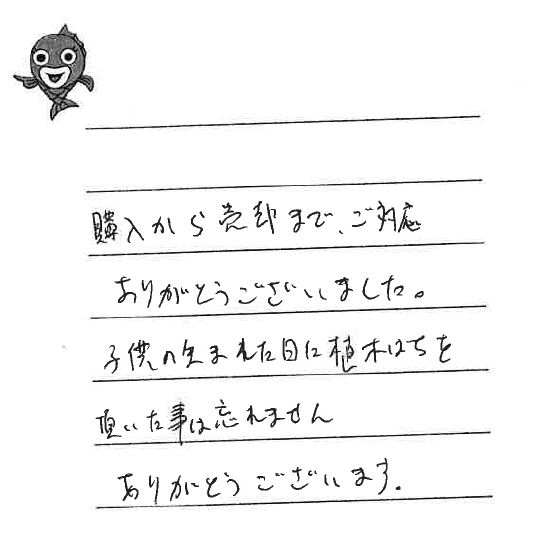 購入から売却まで、ご対応
ありがとうございました。
子供の生まれた日に植木はちを
頂いた事は忘れません
ありがとうございます.